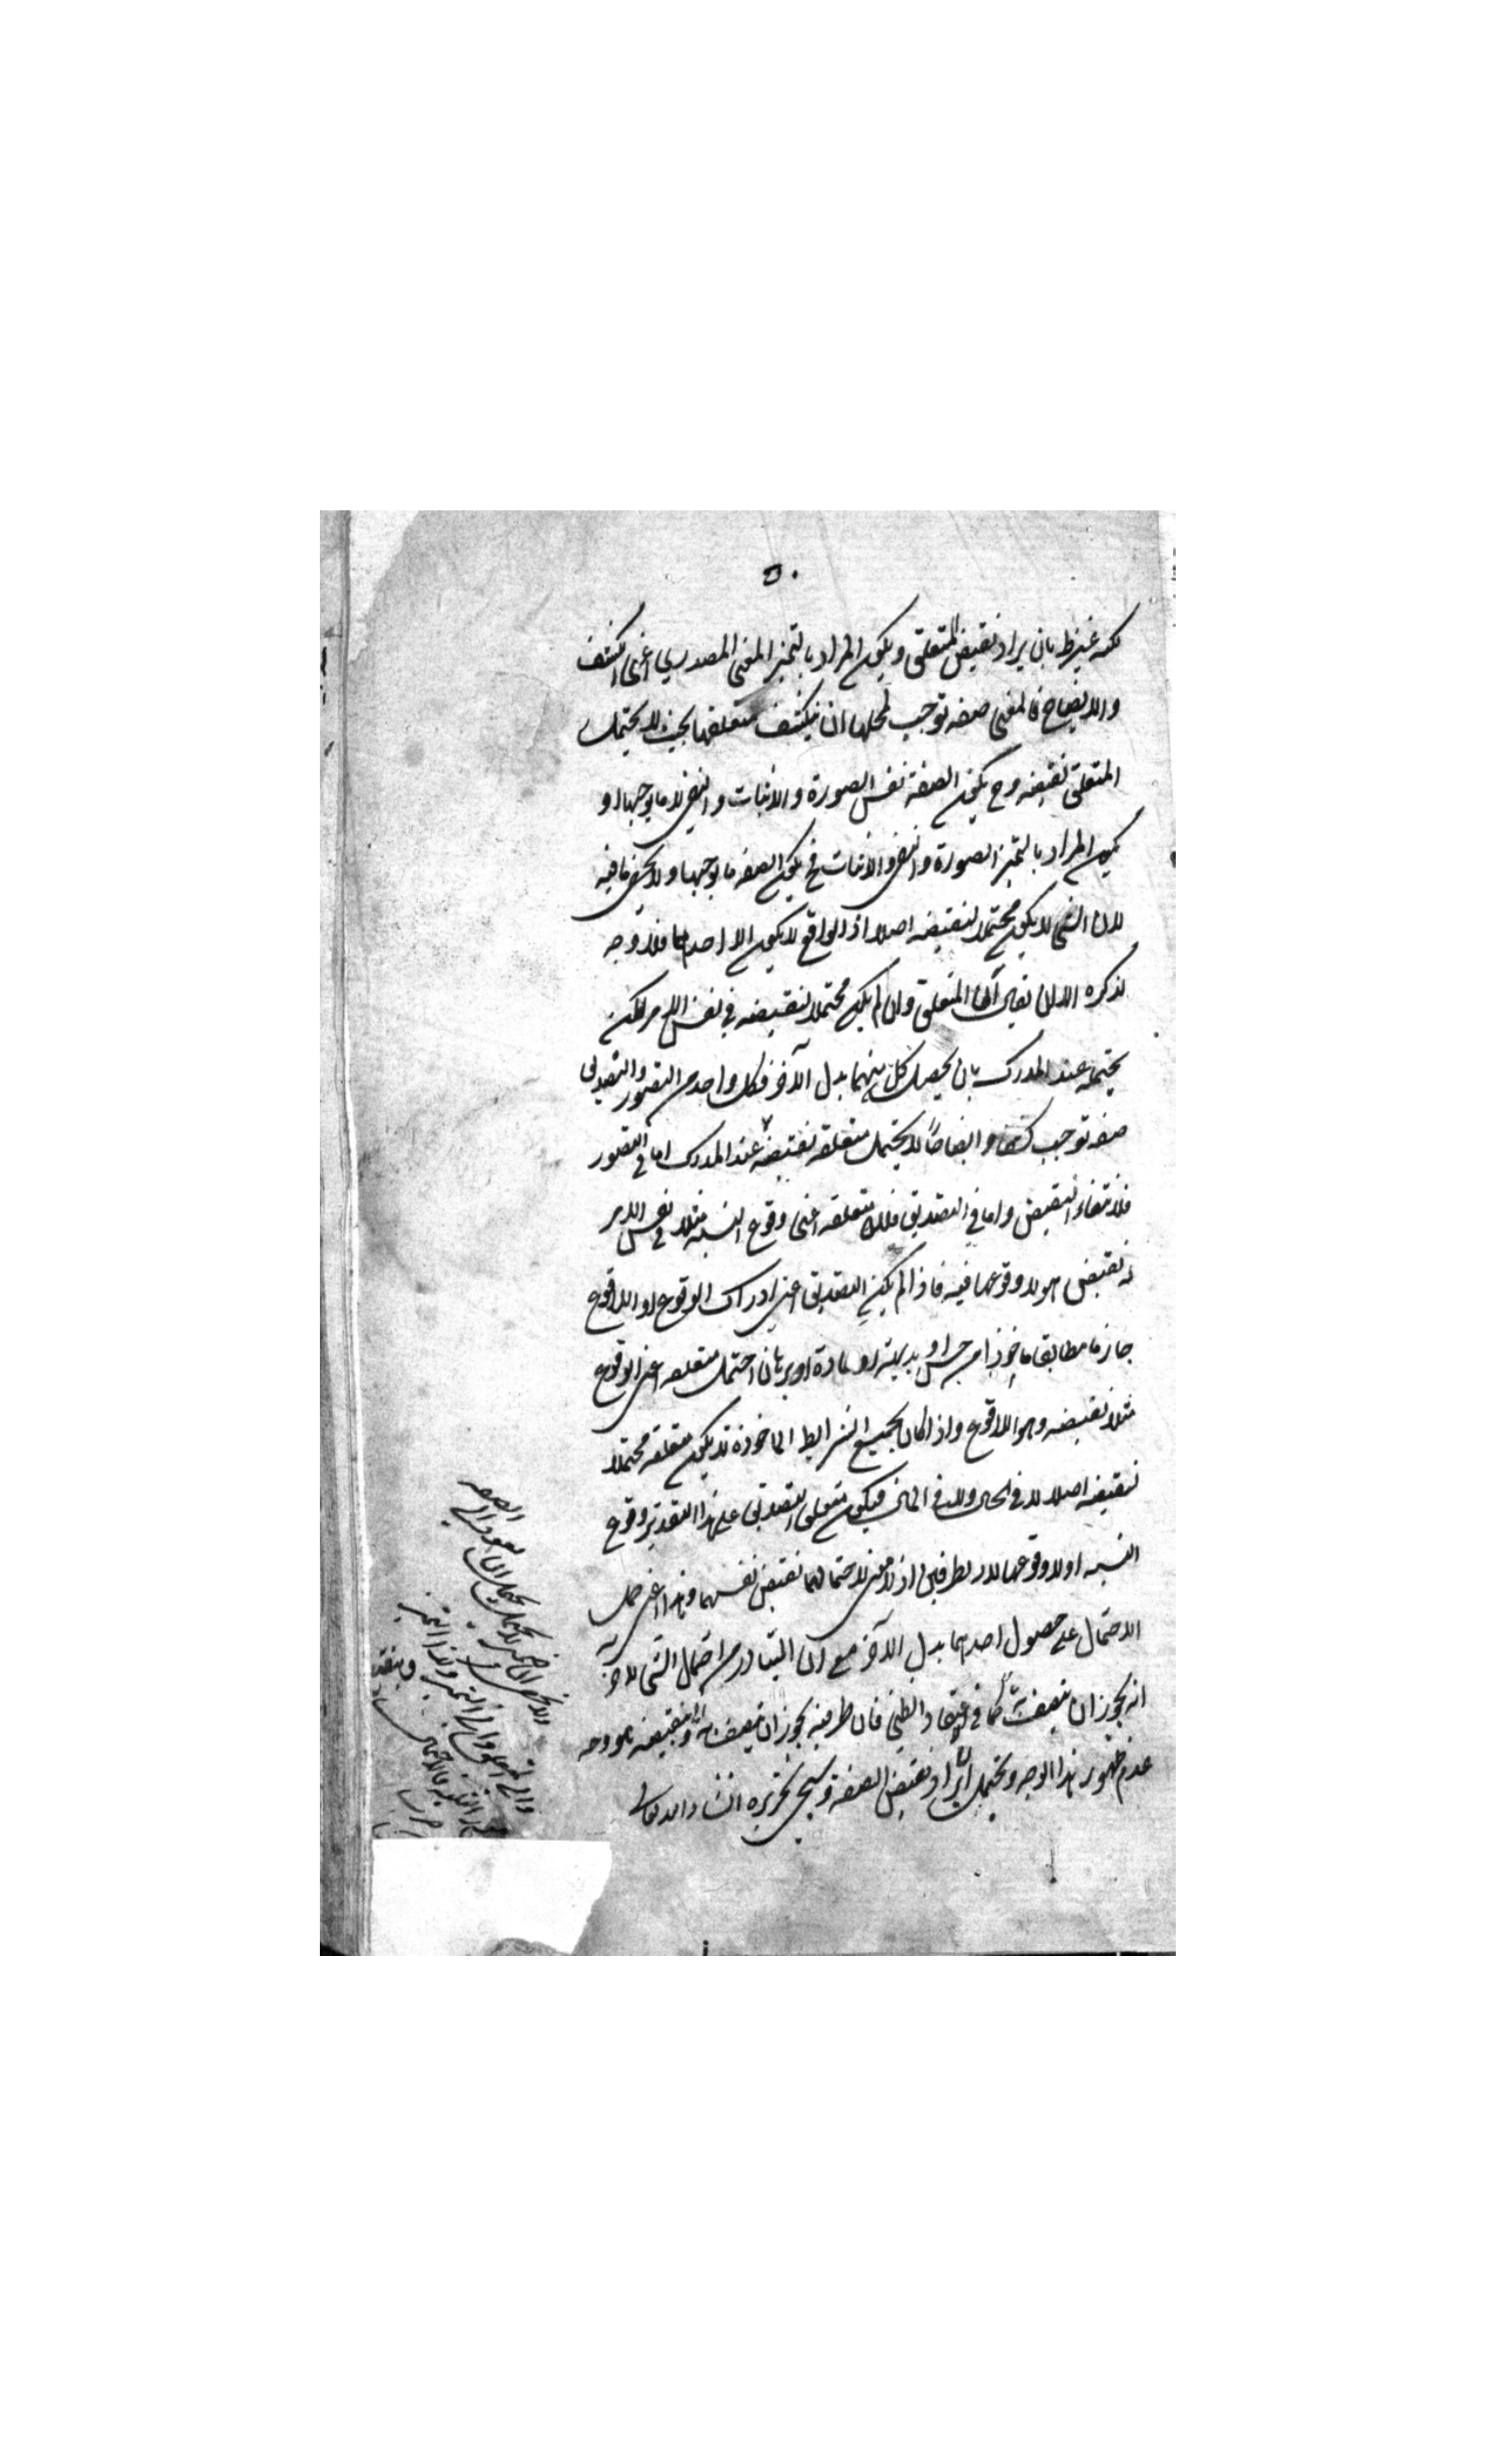 ٥٠
لكنه غير ظ بان يراد نقيض المتعلق ويكون المراد بالتميز المعنى المصدري اعنى الكشف
والايضاح فالمعنى صفة توجب لمحلها ان ينكشف متعلقها بحيث لا يحتمل
المتعلق نقيضه وح يكون الصفة نفس الصورة والاثبات والنفي لا ما يوجبها او
يكون المراد بالتميز الصورة والنفي والاثبات فح يكون الصفة ما يوجبها ولا يخفى ما فيه
لان الشى لا يكون محتملا لنقيضه اصلا اذ الواقع لا يكون الا احدهما فلا وجه
لذكره الا ان يقال ان المتعلق وان لم يكن محتملا لنقيضه في نفس الامر لكن
يحتمله عند المدرك بان يحصل كل منهما بدل الآخر فكل واحد من التصور والتصديق
صفة توجب كشفا وايضاحا لا يحتمل متعلقه نقيضه عند المدرك اما في التصور
فلانتفاء النقيض واما في التصديق فلان متعلقه اعنى وقوع النسبة مثلا في نفس الامر
له نقيض هو لا وقوعها فيه فاذا لم يكن التصديق اعنى ادراك الوقوع او اللاوقوع
جازما مطابقا ماخوذا من حس او بديهة او عادة او برهان احتمل متعلقه اعنى الوقوع
مثلا نقيضه وهو اللاوقوع واذا كان بجميع الشرايط الماخوذة لا يكون متعلقه محتملا
لنقيضه اصلا لا في الحال ولا في المال فيكون متعلق التصديق على هذا التقدير وقوع
النسبة او لا وقوعها لا الطرفين اذ لا معنى لاحتمالهما نقيض نفسهما وهذا اعنى حمل
الاحتمال على حصول احدهما بدل الآخر مع ان المتبادر من احتمال الشى لاخر
انه يجوز ان يتصف به كما في الاعتقاد الظني فان طرفيه يجوز ان يتصف به وبنقيضه هو وجه
عدم ظهور هذا الوجه ويحتمل ان يراد نقيض الصفة وسيجى تحريره انشاء الله تعالى